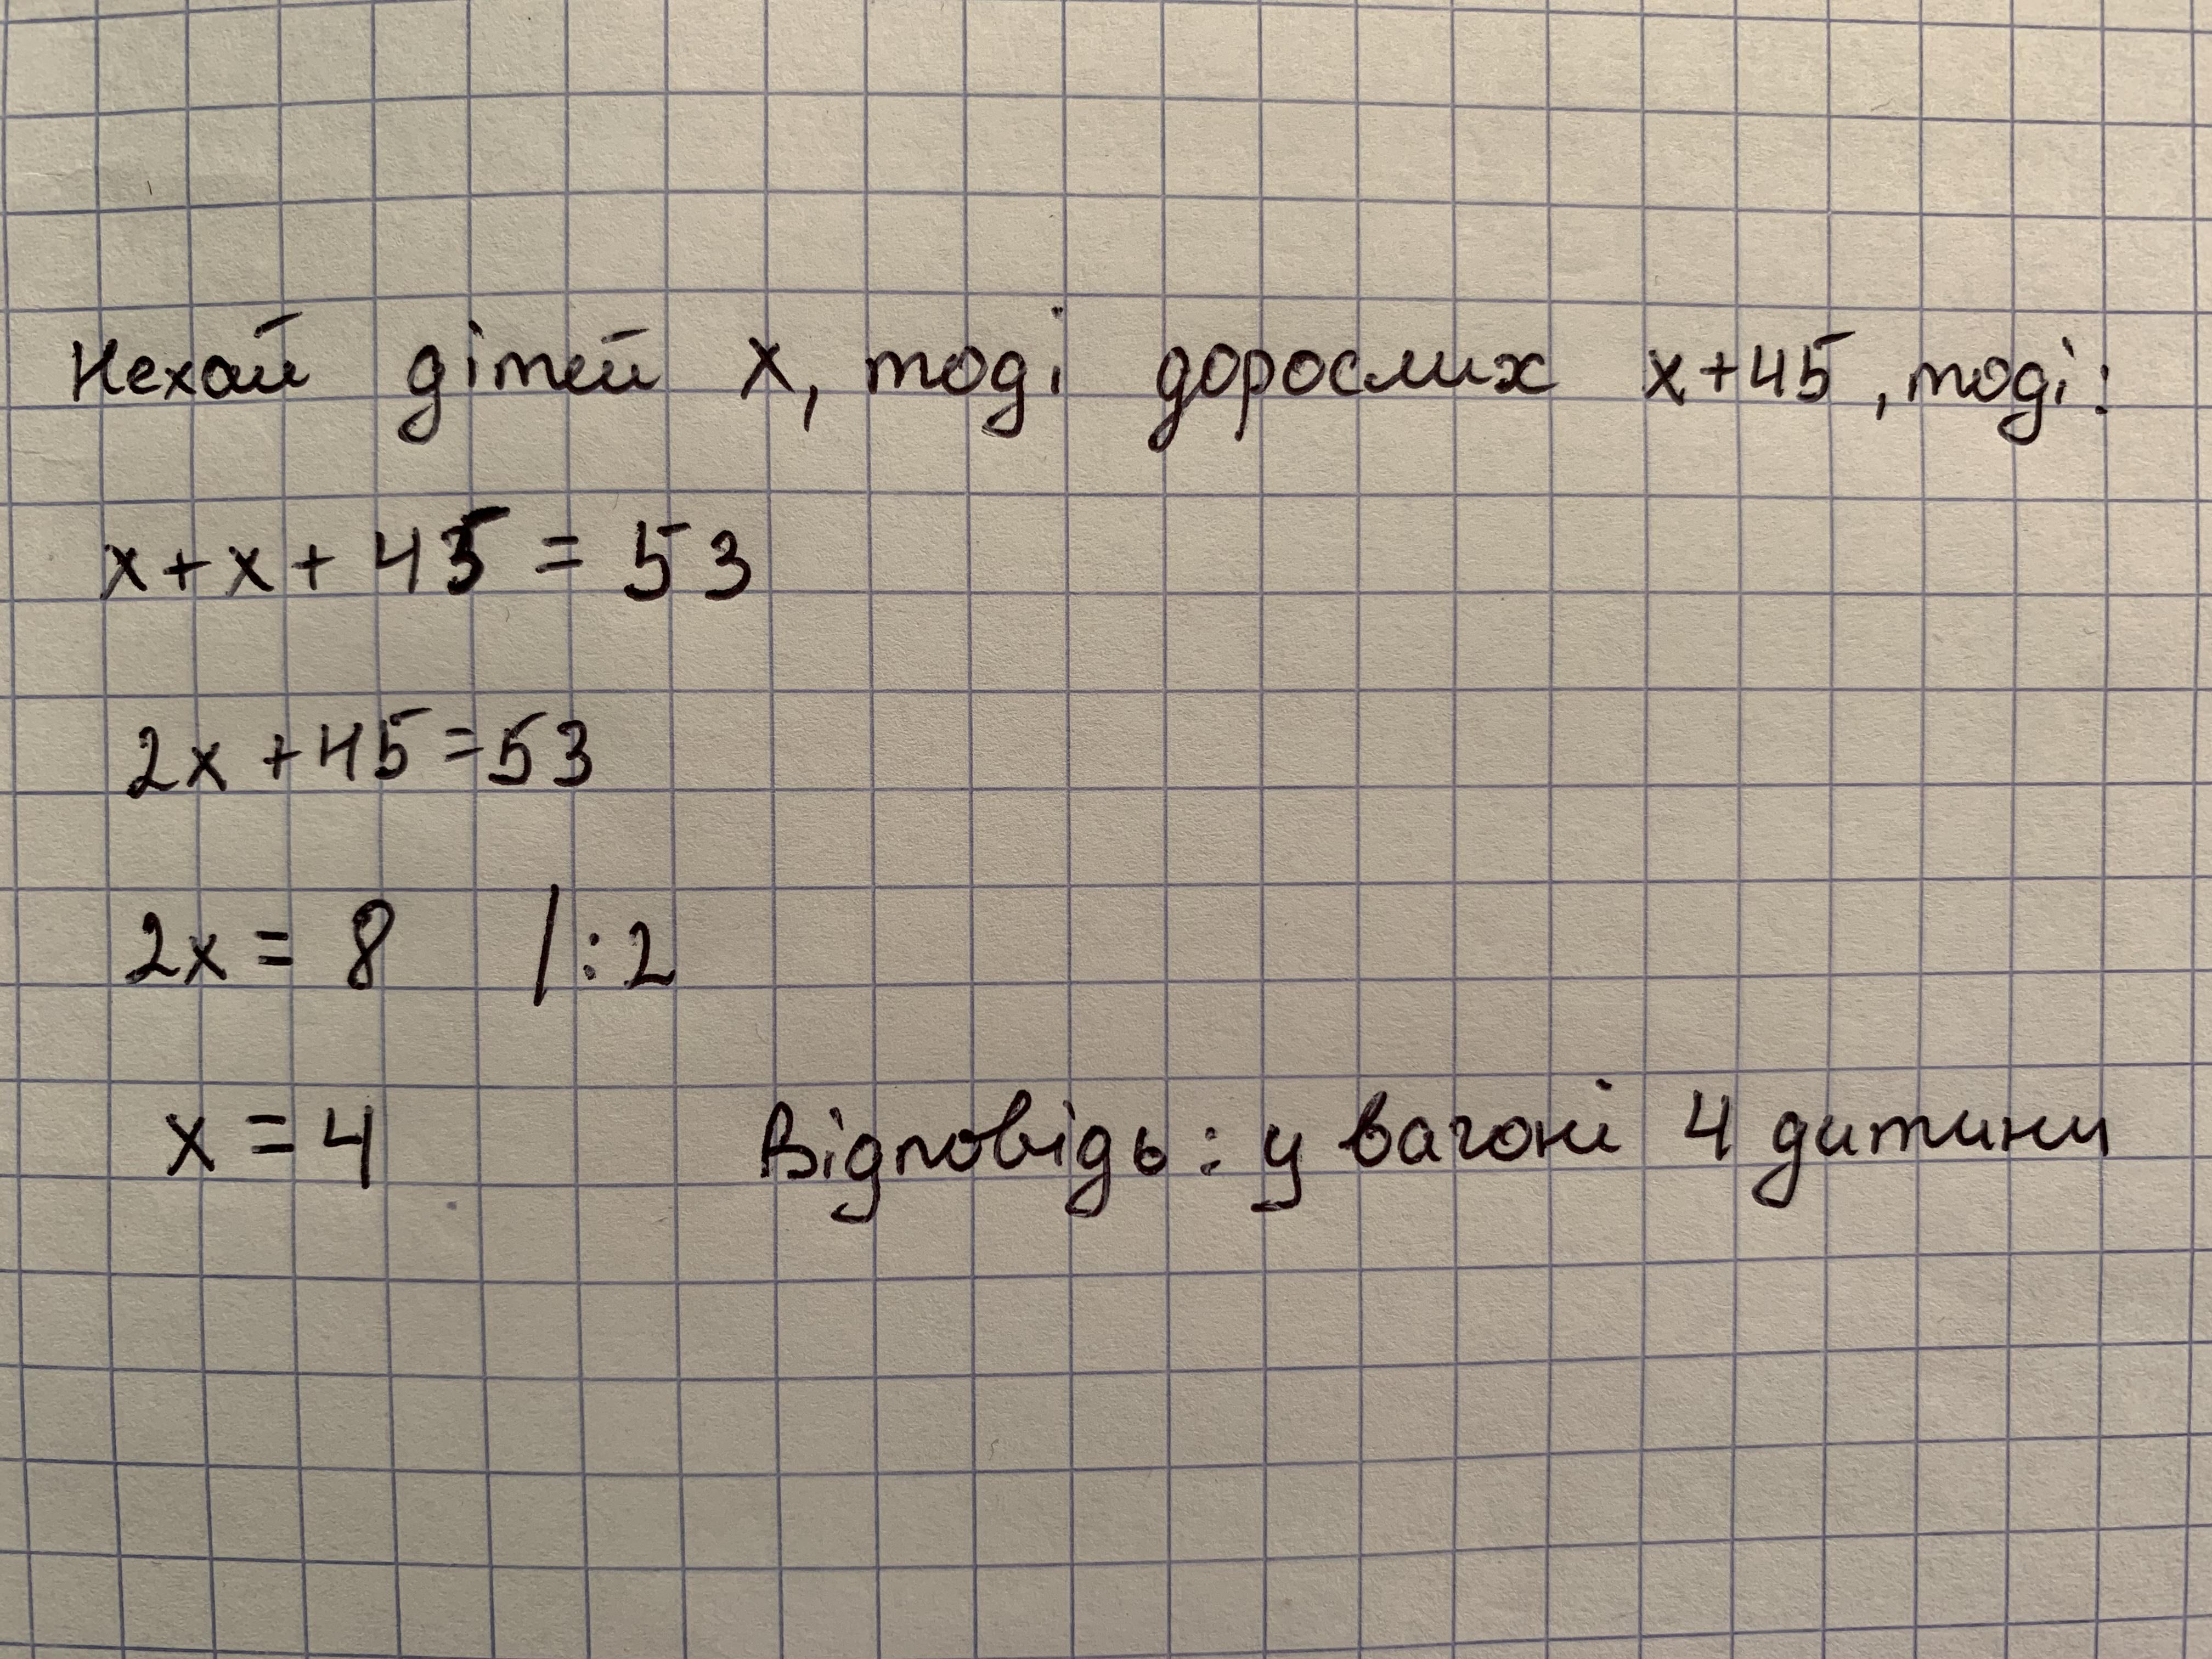 Нехай дітей x, тоді дорослих x+45, тоді:
x+x+45=53
2x+45=53
2x=8 /:2
x=4 Відповідь: у вагоні 4 дитини